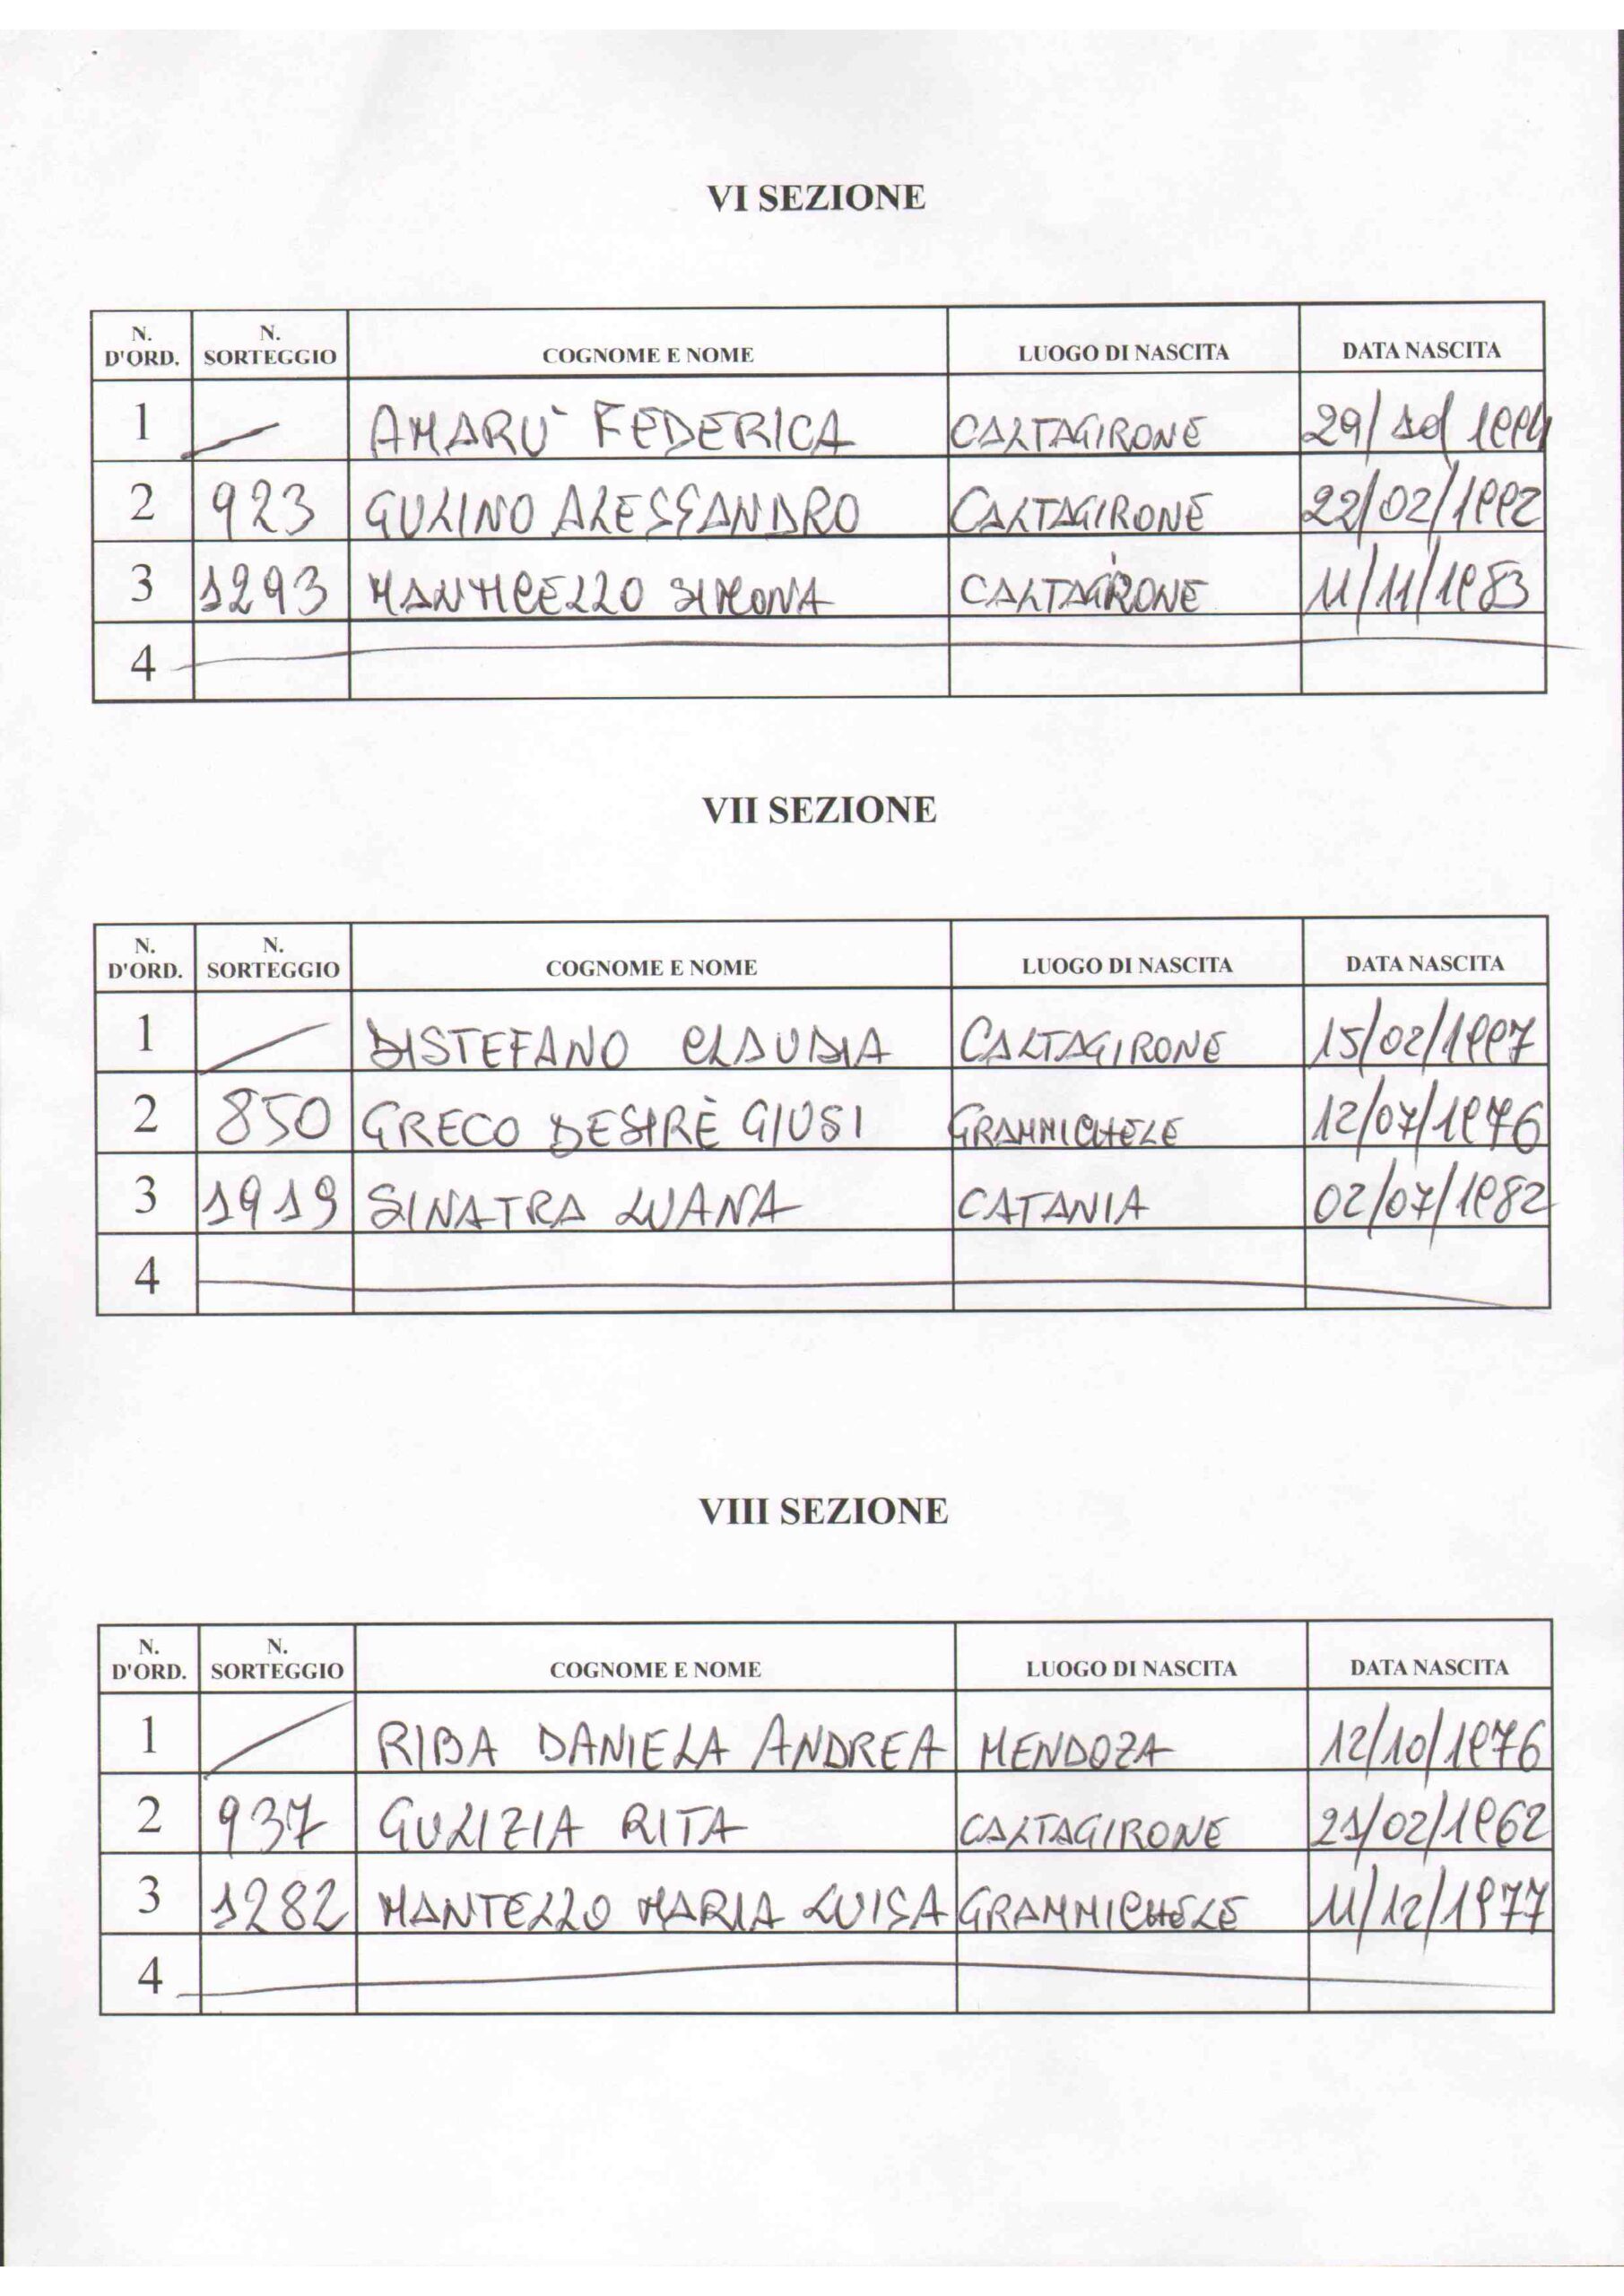 VI SEZIONE
N. D'ORD. N. SORTEGGIO COGNOME E NOME LUOGO DI NASCITA DATA NASCITA
1 AMARU' FEDERICA CALTAGIRONE 29/
2 923 GULINO ALESSANDRO CALTAGIRONE 22/02/1992
3 1293 SIMONA CALTAGIRONE 11/11/1983
4
VII SEZIONE
N. D'ORD. N. SORTEGGIO COGNOME E NOME LUOGO DI NASCITA DATA NASCITA
1 DISTEFANO CLAUDIA CALTAGIRONE 15/02/1997
2 850 GRECO DESIRÈ GIUSI GRAMMICHELE 12/07/1976
3 1919 SINATRA LUANA CATANIA 02/07/1982
4
VIII SEZIONE
N. D'ORD. N. SORTEGGIO COGNOME E NOME LUOGO DI NASCITA DATA NASCITA
1 RIBA DANIELA ANDREA MENDOZA 12/10/1976
2 937 GULIZIA RITA CALTAGIRONE 21/02/1962
3 1282 MANTELLO MARIA LUISA GRAMMICHELE 11/12/1977
4